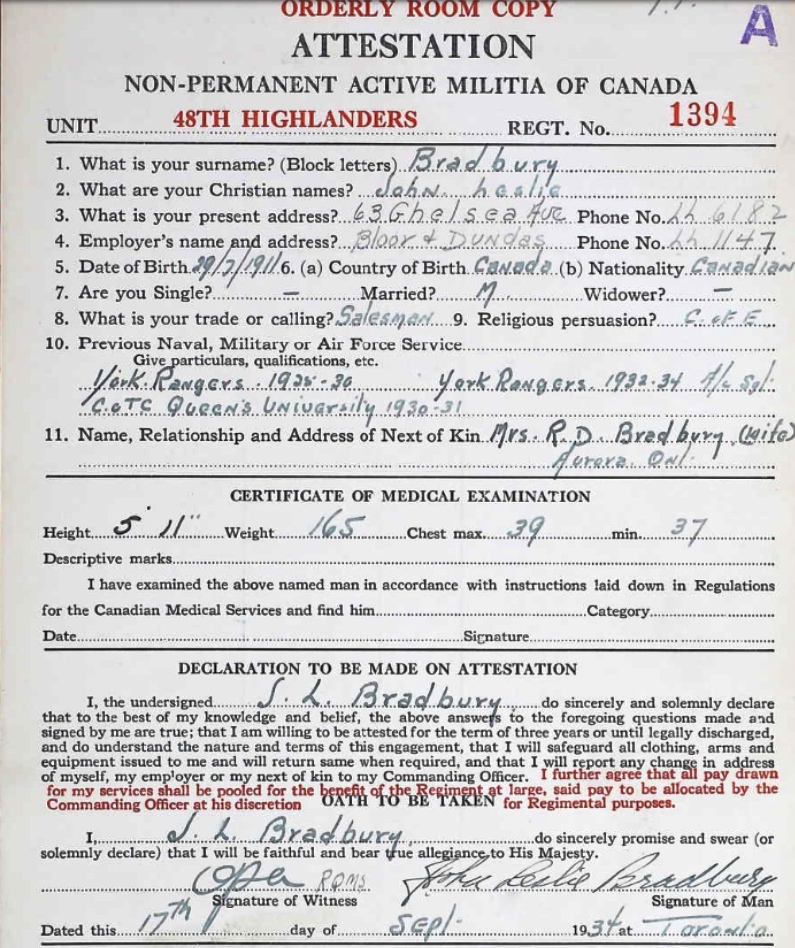 ORDERLY ROOM COPY
A
ATTESTATION
NON-PERMANENT ACTIVE MILITIA OF CANADA
UNIT 48TH HIGHLANDERS REGT. No. 1394
1. What is your surname? (Block letters) Bradbury
2. What are your Christian names? John Leslie
3. What is your present address? 63 Chelsea Ave Phone No. LL 6182
4. Employer's name and address? Bloor & Dundas Phone No. LL 1147
5. Date of Birth 29/7/1911 6. (a) Country of Birth Canada (b) Nationality Canadian
7. Are you Single? — Married? M. Widower? —
8. What is your trade or calling? Salesman 9. Religious persuasion? C. of E.
10. Previous Naval, Military or Air Force Service
Give particulars, qualifications, etc.
York Rangers. 1928-30 York Rangers. 1932-34 A/c Sgt.
C.OTC Queen's University 1930-31
11. Name, Relationship and Address of Next of Kin Mrs. R. D. Bradbury (Wife)
Aurora. Ont.
CERTIFICATE OF MEDICAL EXAMINATION
Height 5' 11" Weight 165 Chest max. 39 min. 37
Descriptive marks
I have examined the above named man in accordance with instructions laid down in Regulations
for the Canadian Medical Services and find him Category
Date Signature
DECLARATION TO BE MADE ON ATTESTATION
I, the undersigned J. L. Bradbury do sincerely and solemnly declare
that to the best of my knowledge and belief, the above answers to the foregoing questions made and
signed by me are true; that I am willing to be attested for the term of three years or until legally discharged,
and do understand the nature and terms of this engagement, that I will safeguard all clothing, arms and
equipment issued to me and will return same when required, and that I will report any change in address
of myself, my employer or my next of kin to my Commanding Officer. I further agree that all pay drawn
for my services shall be pooled for the benefit of the Regiment at large, said pay to be allocated by the
Commanding Officer at his discretion OATH TO BE TAKEN for Regimental purposes.
I, J. L. Bradbury, do sincerely promise and swear (or
solemnly declare) that I will be faithful and bear true allegiance to His Majesty.
RQMS John Leslie Bradbury
Signature of Witness Signature of Man
Dated this 17th day of Sept. 1934 at Toronto